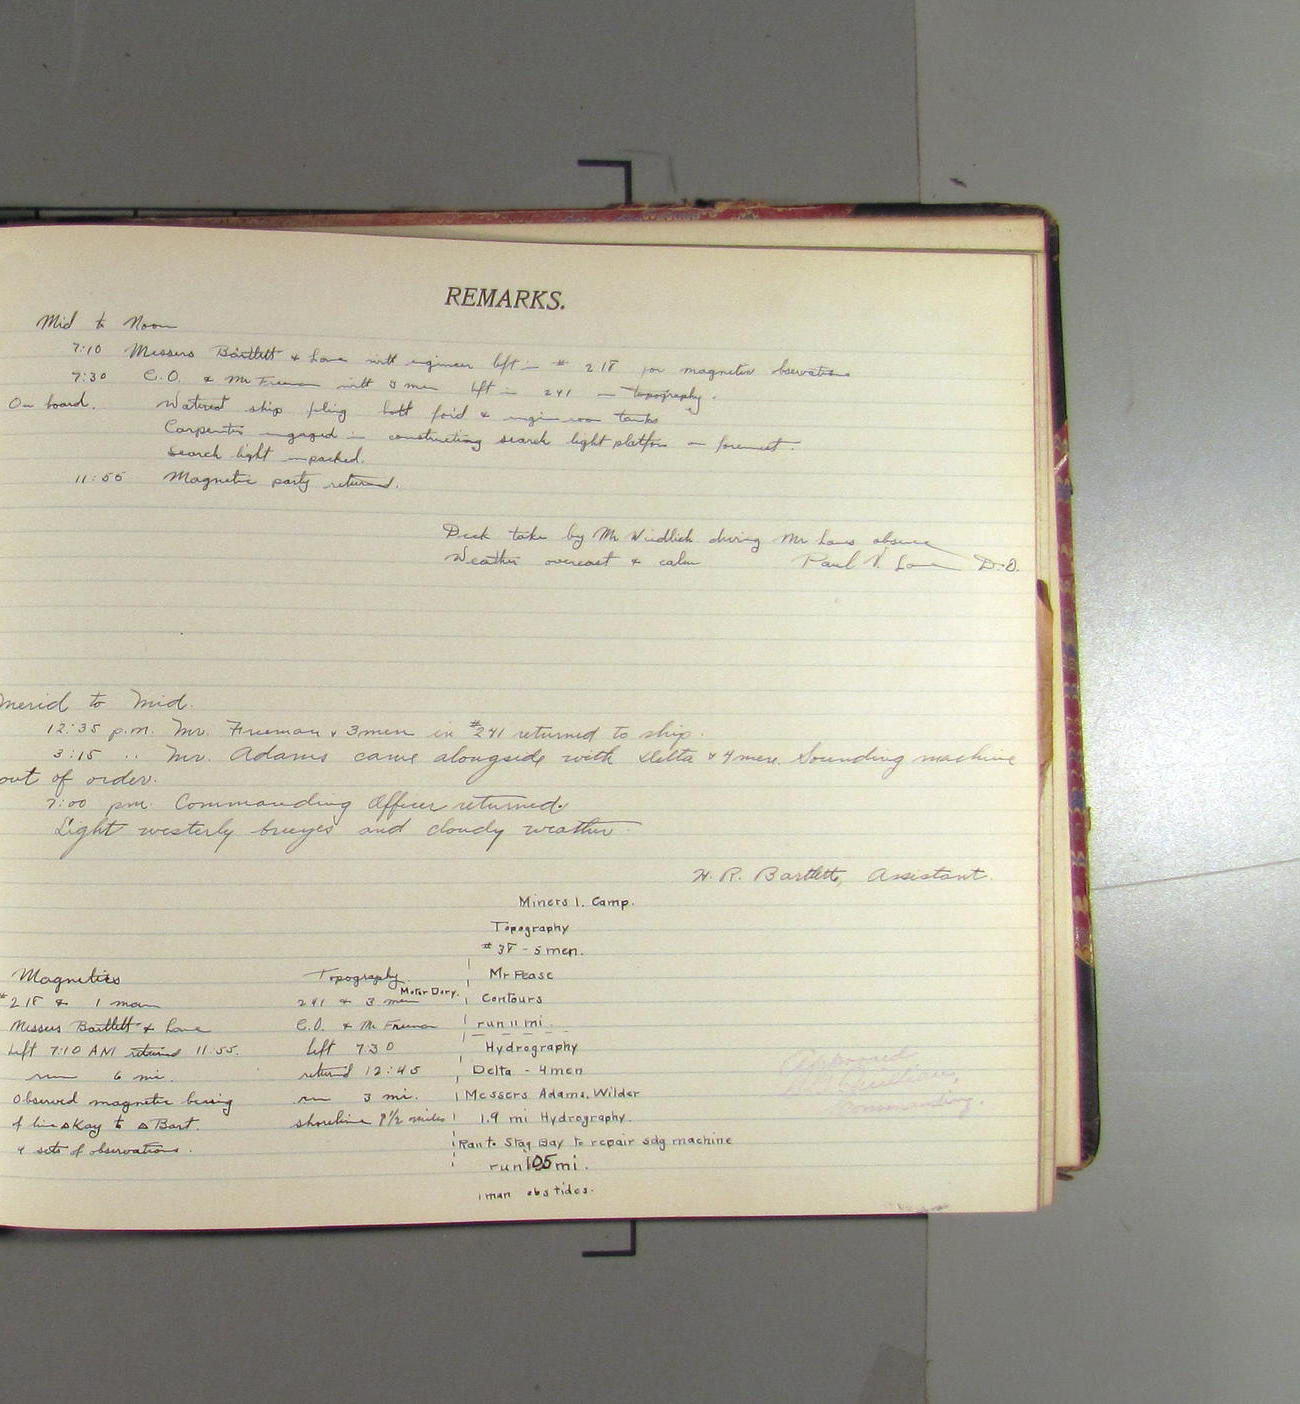 REMARKS.
Mid to Noon
7:10 Messers Bartlett & Lane with engineer left in # 218 for magnetic observations
7:30 C.O. & Mr Freeman with 3 men left in 241 on topography.
On board. Watered ship filling both ford & engine room tanks
Carpenter engaged in constructing search light platform on foremast.
Search light unpacked.
11:55 Magnetic party returned.
Deck taken by Mr during Mr Lanes absence
Weather overcast & calm Paul V. Lane D.O.
Merid to Mid.
12:35 p.m. Mr. Freeman & 3 men in #241 returned to ship.
3:15 " Mr. Adams came alongside with Delta & 4 men. Sounding machine
out of order.
7:00 pm. Commanding Officer returned.
Light westerly breezes and cloudy weather.
H. R. Bartlett, Assistant.
Miners I. Camp.
Topography
#38 - 5 men.
Mr Pease
Contours
run 11 mi.
Hydrography
Delta - 4 men
Messers Adams, Wilder
1.9 mi Hydrography.
Ran to Stag Bay to repair sdg machine
run 105 mi.
1 man obs tides.
Magnetics
#218 & 1 man
Messers Bartlett & Lane
Left 7:10 AM returned 11:55.
run 6 mi.
Observed magnetic bearing
of line △ Kay to △ Bart.
4 sets of observations.
Topography
Motor Dory.
241 & 3 men
C.O. & Mr Freeman
left 7:30
returned 12:45
run 3 mi.
shoreline 8½ miles
Approved
Commanding.